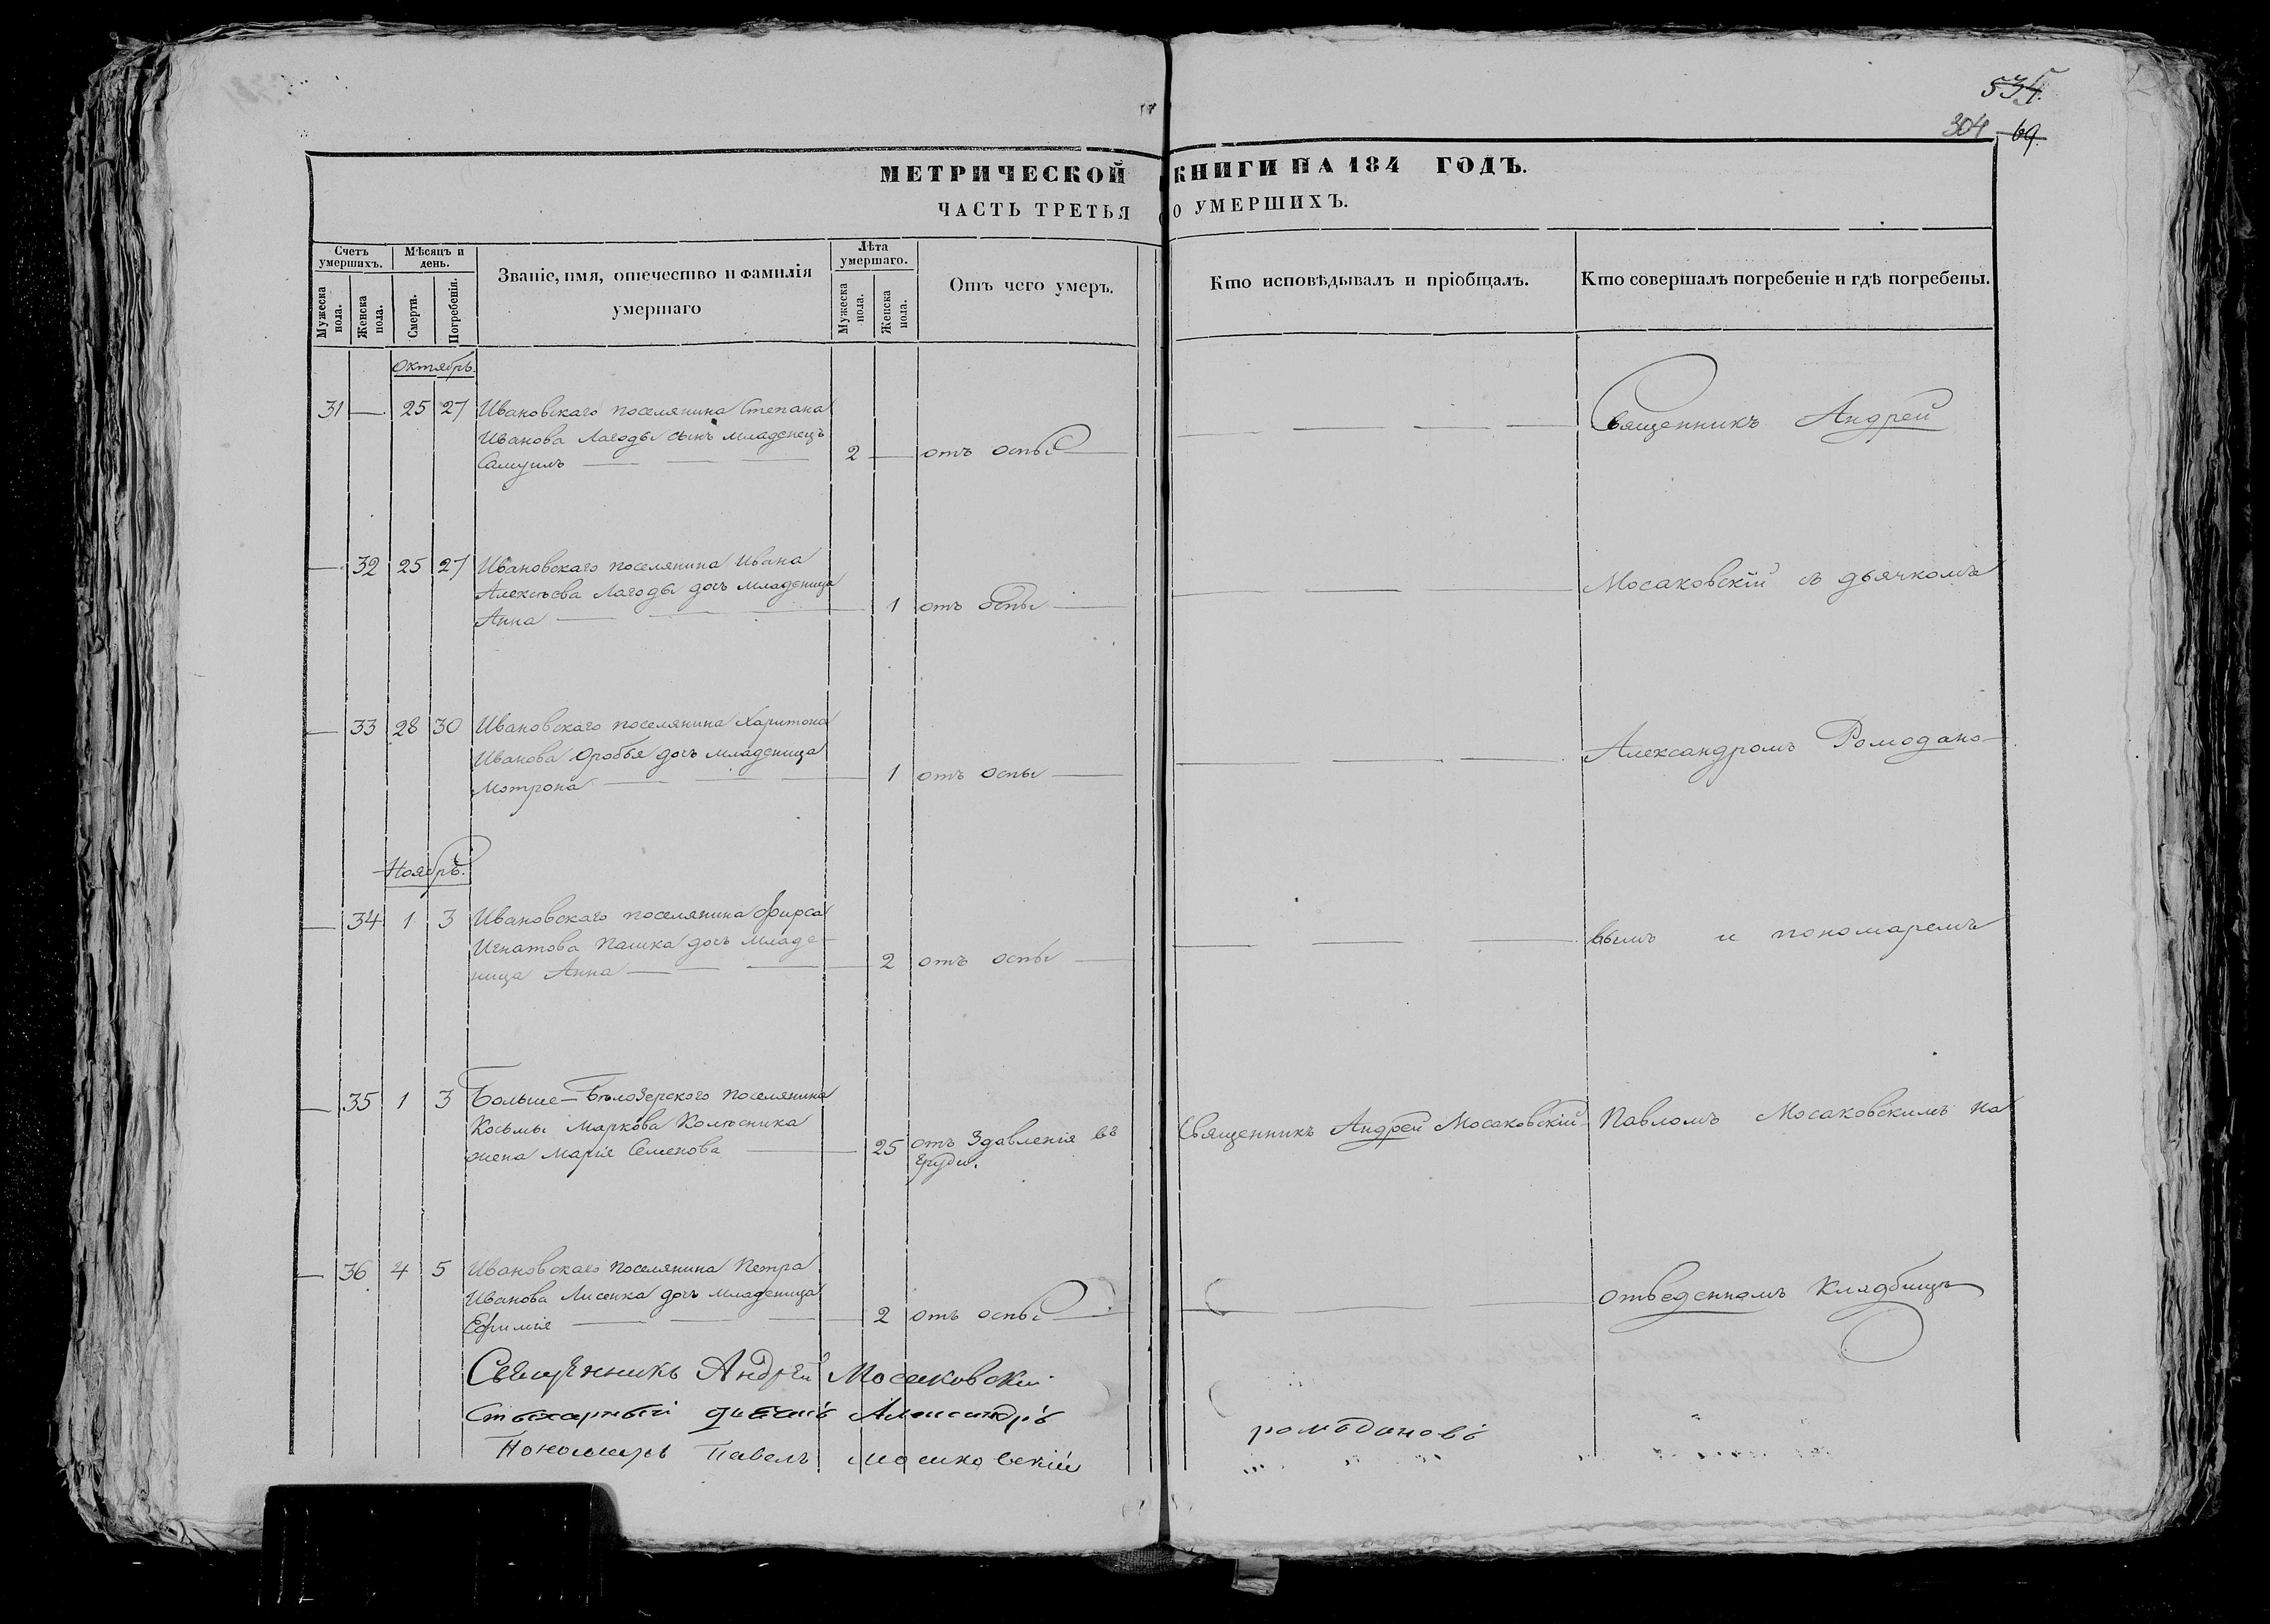 535.
304 69.
МЕТРИЧЕСКОЙ КНИГИ НА 184 ГОДЪ.
ЧАСТЬ ТРЕТЬЯ О УМЕРШИХЪ.
Счетъ умершихъ.
Мужеска пола.
Женска пола.
Мѣсяцъ и день.
Смерти.
Погребенія.
Званіе, имя, отечество и фамилія
умершаго
Лѣта умершаго.
Мужеска пола.
Женска пола.
Отъ чего умеръ.
Кто исповѣдывалъ и пріобщалъ.
Кто совершалъ погребеніе и гдѣ погребены.
Октябрь.
31 — 25 27 Ивановскаго поселянина Степана
Иванова Лагоды сынъ младенецъ
Самуилъ — 2 — отъ оспы —
Священникъ Андрей
— 32 25 27 Ивановскаго поселянина Ивана
Алексѣева Лагоды дочь младеница
Анна — 1 отъ оспы —
Мосаковскій съ дьячкомъ
— 33 28 30 Ивановскаго поселянина Харитона
Иванова Оробья дочь младеница
Мотрона — 1 отъ оспы —
Александромъ Ромодано-
Ноябрь.
— 34 1 3 Ивановскаго поселянина Фирса
Игнатова Пашка дочь младе-
ница Анна — 2 отъ оспы —
вымъ и пономаремъ
— 35 1 3 Больше-Бѣлозерского поселянина
Косьмы Маркова Колесника
жена Марія Семенова — 25 отъ здавленія въ
груди.
Священникъ Андрей Мосаковскій
Павломъ Мосаковскимъ на
— 36 4 5 Ивановскаго поселянина Петра
Иванова Лисенка дочь младеница
Ефимія — 2 отъ оспы —
отведенномъ кладбищѣ
Священникъ Андрей Мосаковскій
Стихарный дьячокъ Александръ Ромодановъ
Пономарь Павелъ Мосаковскій